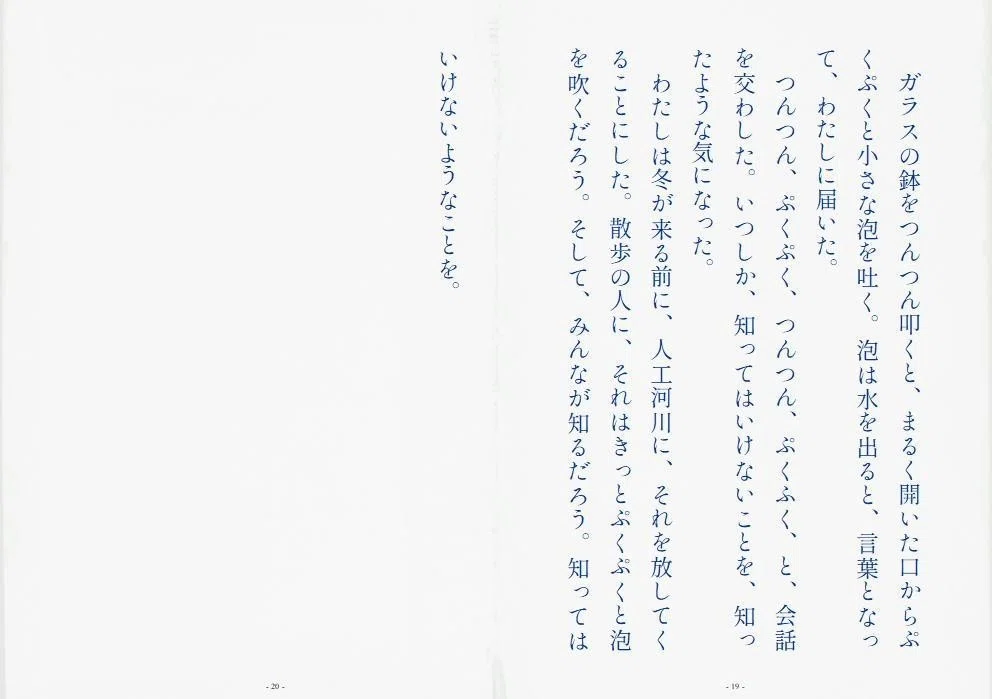 ガラスの鉢をつんつん叩くと、まるく開いた口からぷ
くぷくと小さな泡を吐く。泡は水を出ると、言葉となっ
て、わたしに届いた。
つんつん、ぷくぷく、つんつん、ぷくふく、と、会話
を交わした。いつしか、知ってはいけないことを、知っ
たような気になった。
わたしは冬が来る前に、人工河川に、それを放してく
ることにした。散歩の人に、それはきっとぷくぷくと泡
を吹くだろう。そして、みんなが知るだろう。知っては
- 19 -
いけないようなことを。
- 20 -